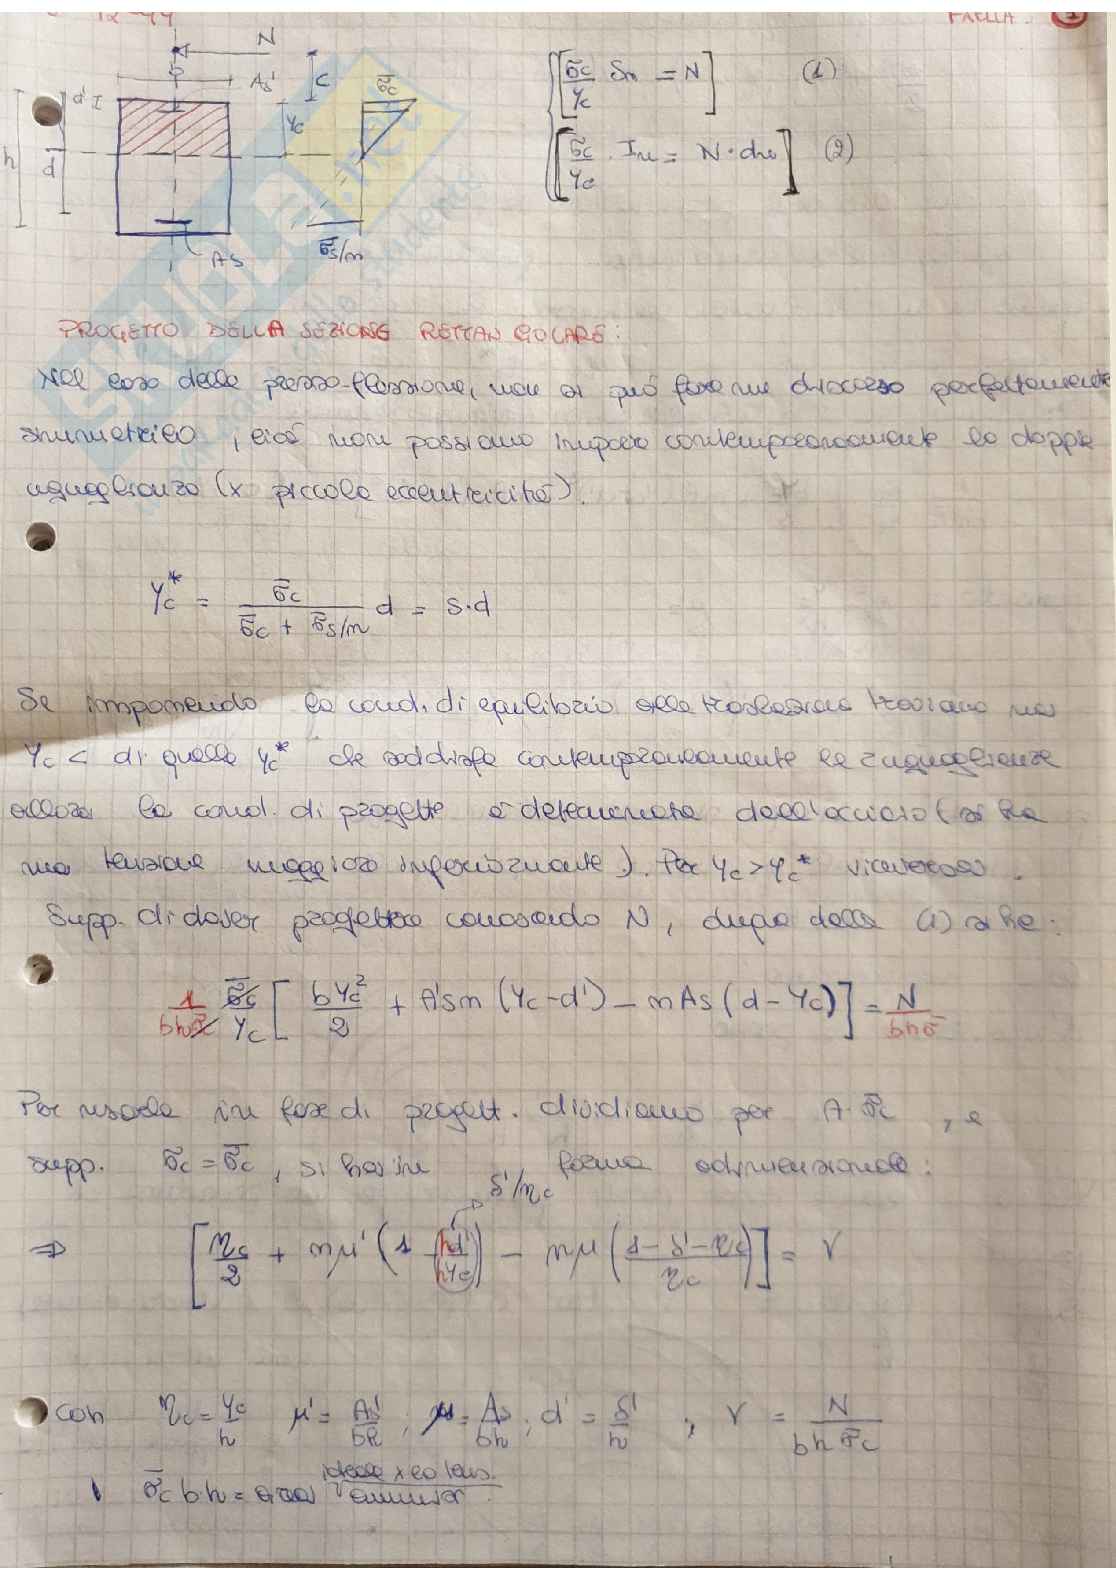 12-
FAELLA. 1
N
b
As'
c
σ̄c
d' I
yc
h
d
As
σ̄s/n
[σ̄c/yc Sn = N] (1)
[σ̄c/yc · In = N·dn] (2)
PROGETTO DELLA SEZIONE RETTANGOLARE:
Nel caso della presso-flessione, non si può fare un discorso perfettamente
simmetrico, cioè non possiamo imporre contemporaneamente la doppia
uguaglianza (x piccola eccentricità).
yc* = σ̄c / (σ̄c + σ̄s/n) d = s·d
Se imponendo la cond. di equilibrio alla traslazione troviamo una
yc < di quella yc* che soddisfa contemporaneamente le 2 uguaglianze
allora la cond. di progetto è determinata dall'acciaio (si ha
una tensione maggiore inferiormente). Per yc > yc* viceversa.
Supp. di dover progettare conoscendo N, dalla (1) si ha:
1/(bhσ̄c) σ̄c/yc [ byc²/2 + A'sn (yc-d') - nAs (d-yc) ] = N/(bhσ̄)
Per usarla in fase di progett. dividiamo per A·σ̄c, e
supp. σc = σ̄c, si ha in forma adimensionale:
δ'/ηc
⇒ [ ηc/2 + nμ' (1 - hd'/hyc) - nμ ( (1-δ'-ηc)/ηc ) ] = ν
con ηc = yc/h μ' = As'/bh ; μ = As/bh ; d' = δ'/h , ν = N/(bh σ̄c)
σ̄c b·h = ideale x la tens.
ammiss.